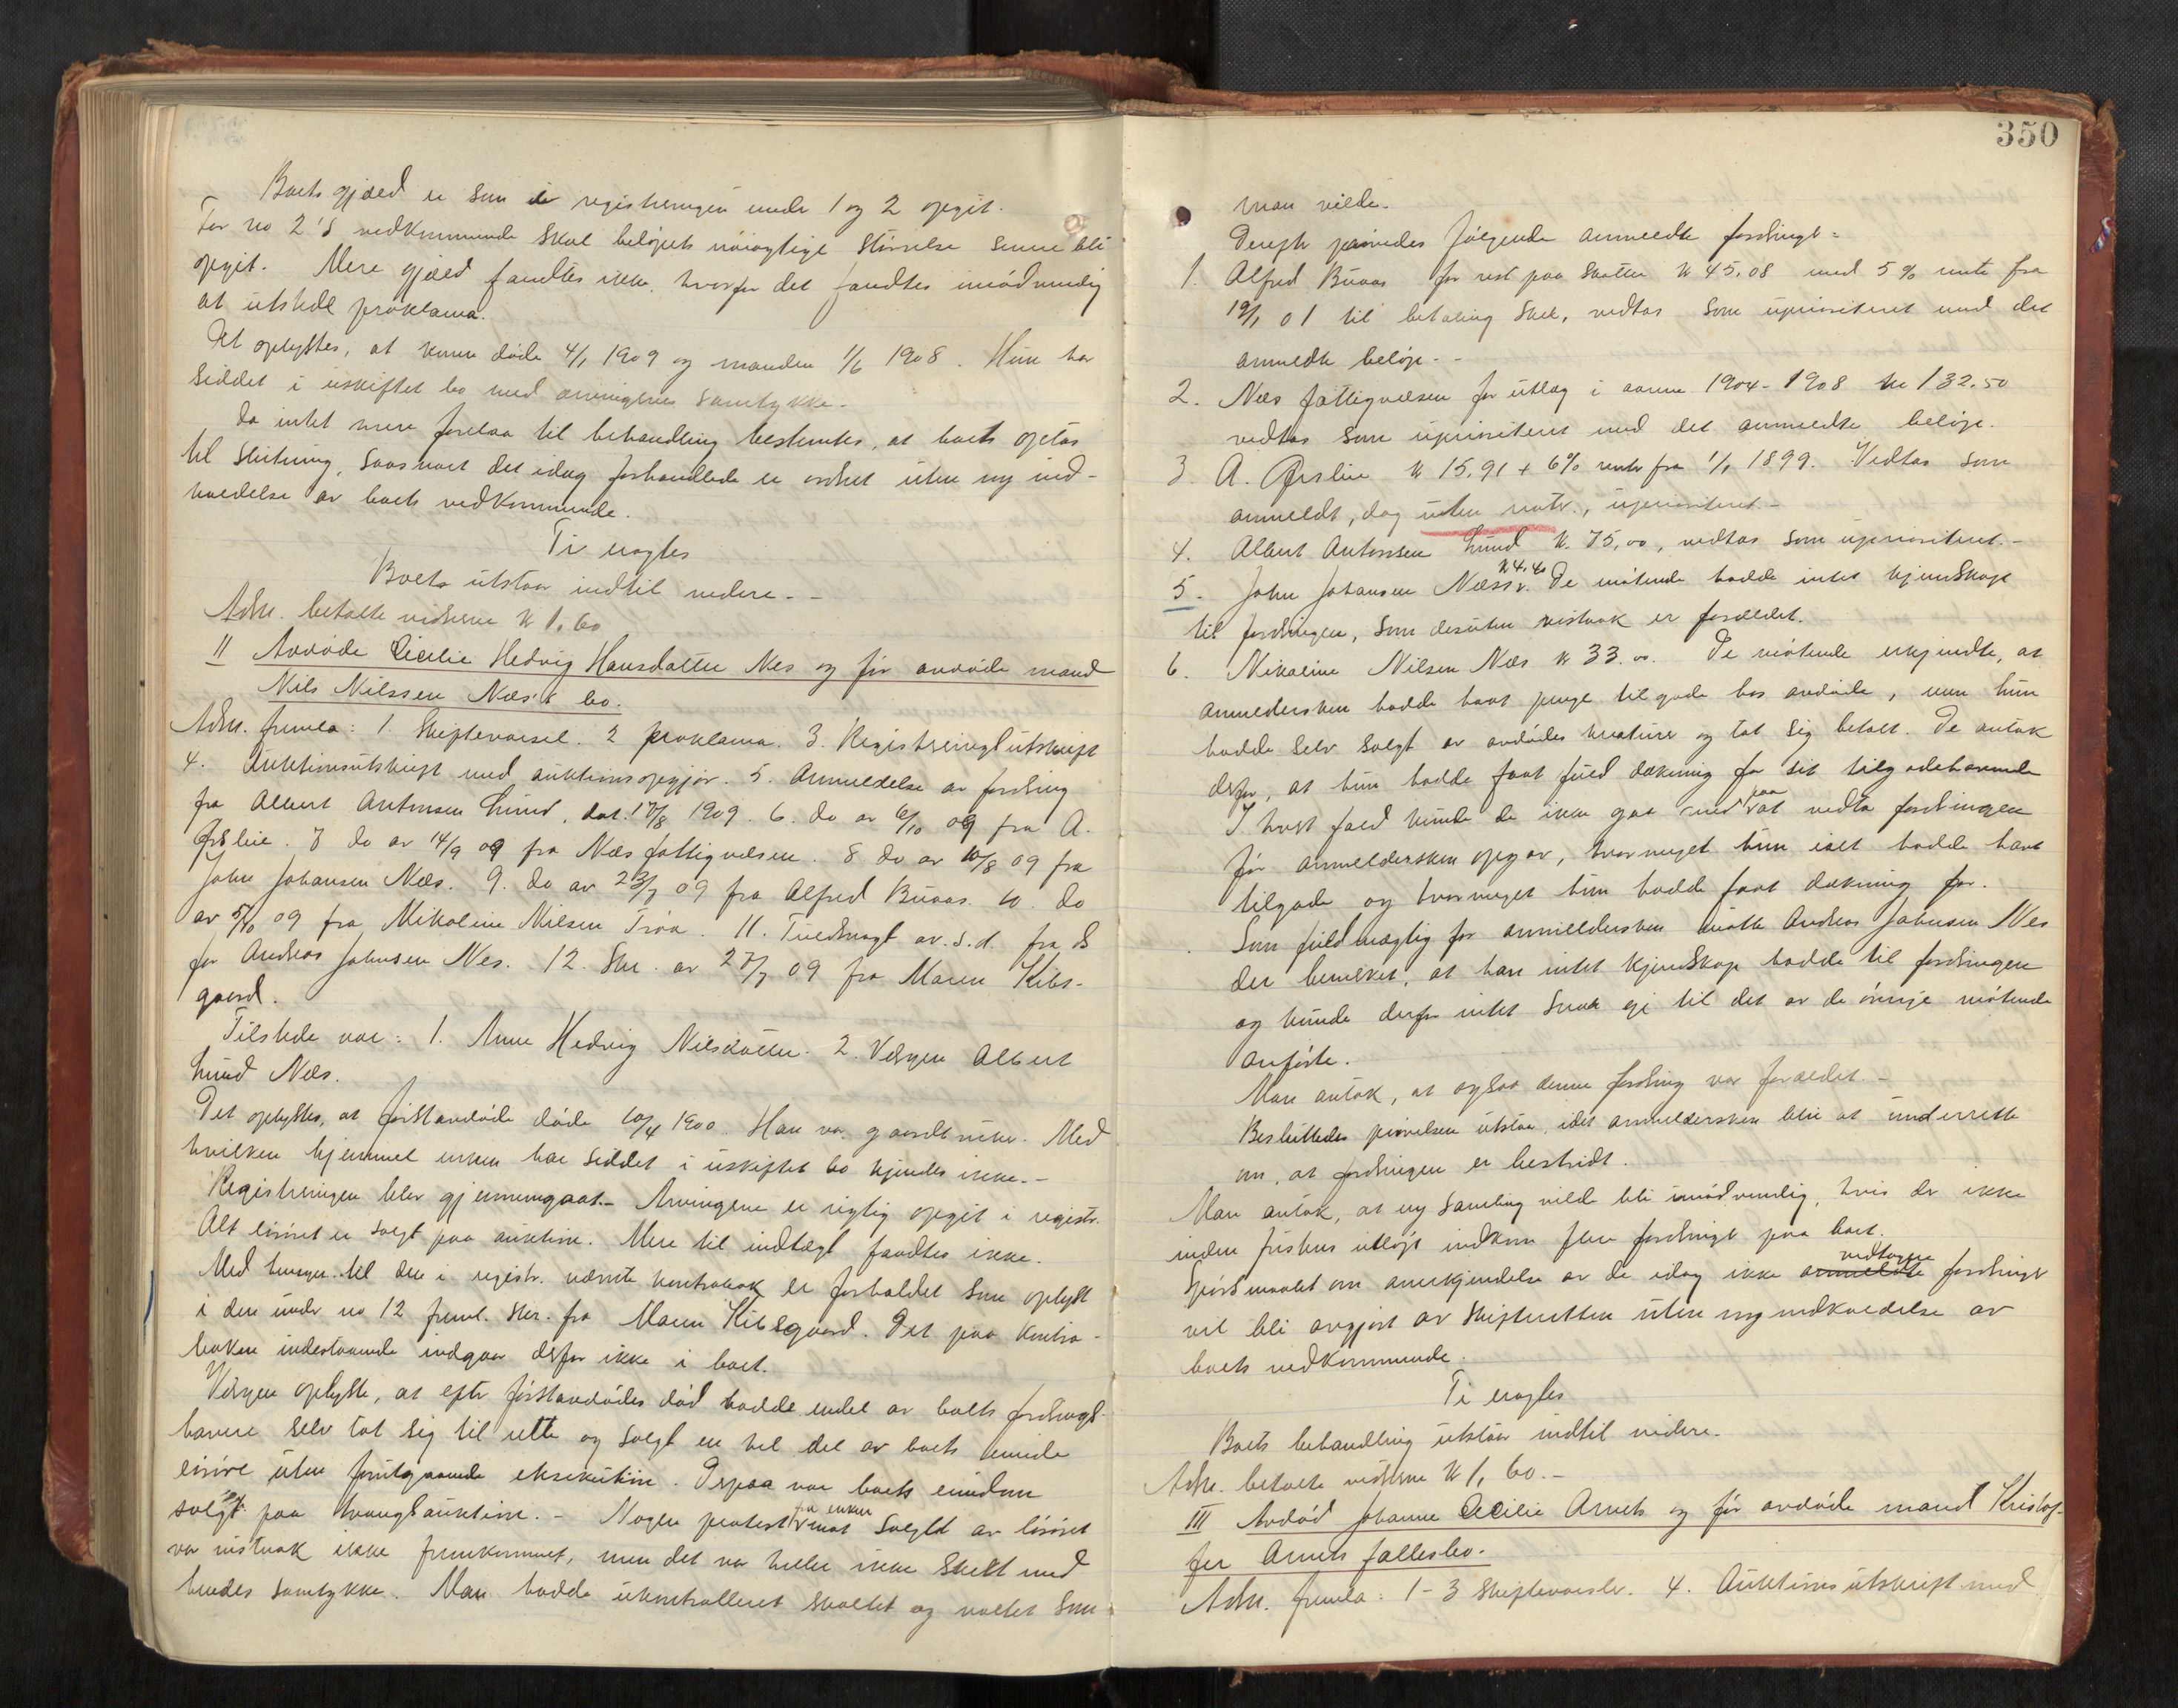 Boets gjæld er som i registreringen under 1 og 2 opgit.
For no 2's vedkommende skal beløpets nøiagtige størrelse senere bli
opgit. Mere gjæld fandtes ikke, hvorfor det fandtes unødvendig
at utstede proklama.
Det oplystes, at konen døde 4/1 1909 og manden 1/6 1908. Hun har
siddet i uskiftet bo med arvingenes samtykke.
Da intet mere forelaa til behandling bestemtes, at boet optas
til slutning, saasnart det idag forhandlede er ordnet uten ny ind-
kaldelse av boets vedkommende.
Ti eragtes
Boets utstaar indtil videre. -
Adm. betalte vidnerne k 1,60
II Avdøde Cecilie Hedvig Hansdatter Nes og før avdøde mand
Nils Nilssen Næs's bo.
Adm. fremla: 1. Skiftevarsel. 2 proklama. 3. Registreringsutskrift
4. Auktionsutskrift med auktionsopgjør. 5. Anmeldelse av fordring
fra Albert Antonsen Lund, dat. 17/8 1909. 6. do av 6/10 09 fra A.
Ørslien. 7 do av 14/9 09 fra Næs fattigvæsen. 8 do av 10/8 09 fra
John Johansen Næs. 9. do av 23/7 09 fra Alfred Buaas. 10. do
av 5/10 09 fra Nikoline Nilsen Trøa. 11. Fuldmagt av s.d. fra ds
for Andreas Johnsen Nes. 12. Skr. av 27/7 09 fra Maren Kibs-
gaard.
Tilstede var: 1. Anne Hedvig Nilsdatter. 2. Vergen Albert
Lund Næs.
Det oplystes, at førstavdøde døde 10/4 1900. Han var gaardbruker. Med
hvilken hjemmel enken har siddet i uskiftet bo kjendes ikke. -
Registreringen blev gjennemgaat. - Arvingene er rigtig opgit i registr.
Alt løsøret er solgt paa auktion. Mere til indtægt fandtes ikke.
Med hensyn til den i registr. nævnte kontrabok er forholdet som oplyst
i den under no 12 freml. skr. fra Maren Kibsgaard. Det paa kontra-
boken indestaaende indgaar derfor ikke i boet.
Vergen oplyste, at efter førstavdødes død hadde endel av boets fordrings-
havere selv tat sig til rette og solgt en hel del av boets eiende
løsøre uten forutgaaende eksekution. Derpaa var boets eiendom
solgt paa tvangsauktion. - Nogen protest fra enken mot salget av løsøret
var vistnok ikke fremkommet, men det var heller ikke skedt med
hendes samtykke. Man hadde ukontrolleret skaltet og valtet som
350
man vilde.
Derefter prøvedes følgende anmeldte fordringer:
1. Alfred Buaas for rest paa skatter k 45,08 med 5% rente fra
19/1 01 til betaling sker, vedtas som uprioriteret med det
anmeldte beløp. -
2. Næs fattigvæsen for utlæg i aarene 1904-1908 kr 132.50
vedtas som uprioriteret med det anmeldte beløp.
3. A. Ørslien k 15,91 + 6% rente fra 1/1 1899. Vedtas som
anmeldt, dog uten rente, uprioriteret. -
4. Albert Antonsen Lund k. 75,00, vedtas som uprioriteret. -
5. John Johansen Næss k 4,40. De møtende hadde intet kjendskap
til fordringen, som desuten vistnok er forældet.
6. Nikoline Nilsen Næs k 33.00. De møtende erkjendte, at
anmeldersken hadde havt penge tilgode hos avdøde, men hun
hadde selv solgt av avdødes kreaturer og tat sig betalt. De antok
derfor, at hun hadde faat fuld dækning for sit tilgodehavende
I hvert fald kunde de ikke gaa med paa at vedta fordringen
før anmeldersken opgav, hvormeget hun ialt hadde havt
tilgode og hvormeget hun hadde faat dækning for.
Som fuldmægtig for anmeldersken møtte Andreas Johnsen Nes
der bemerket, at han intet kjendskap hadde til fordringen
og kunde derfor intet svar gi til det av de øvrige møtende
anførte.
Man antok, at ogsaa denne fordring var forældet. -
Besluttedes prøvelsen utstaa, idet anmeldersken blir at underrette
om, at fordringen er bestridt.
Man antok, at ny samling vilde bli unødvendig, hvis der ikke
inden fristens utløp indkom flere fordringer paa boet.
Spørsmaalet om anerkjendelse av de idag ikke vedtagne fordringer
vil bli avgjort av skifteretten uten ny indkaldelse av
boets vedkommende.
Ti eragtes
Boets behandling utstaar indtil videre.
Adm. betalte vidnerne k 1,60. -
III Avdød Johanne Cecilie Arnets og før avdøde mand Kristof-
fer Arnets fællesbo.
Adm. fremla: 1-3 Skiftevarsler. 4. Auktionsutskrift med